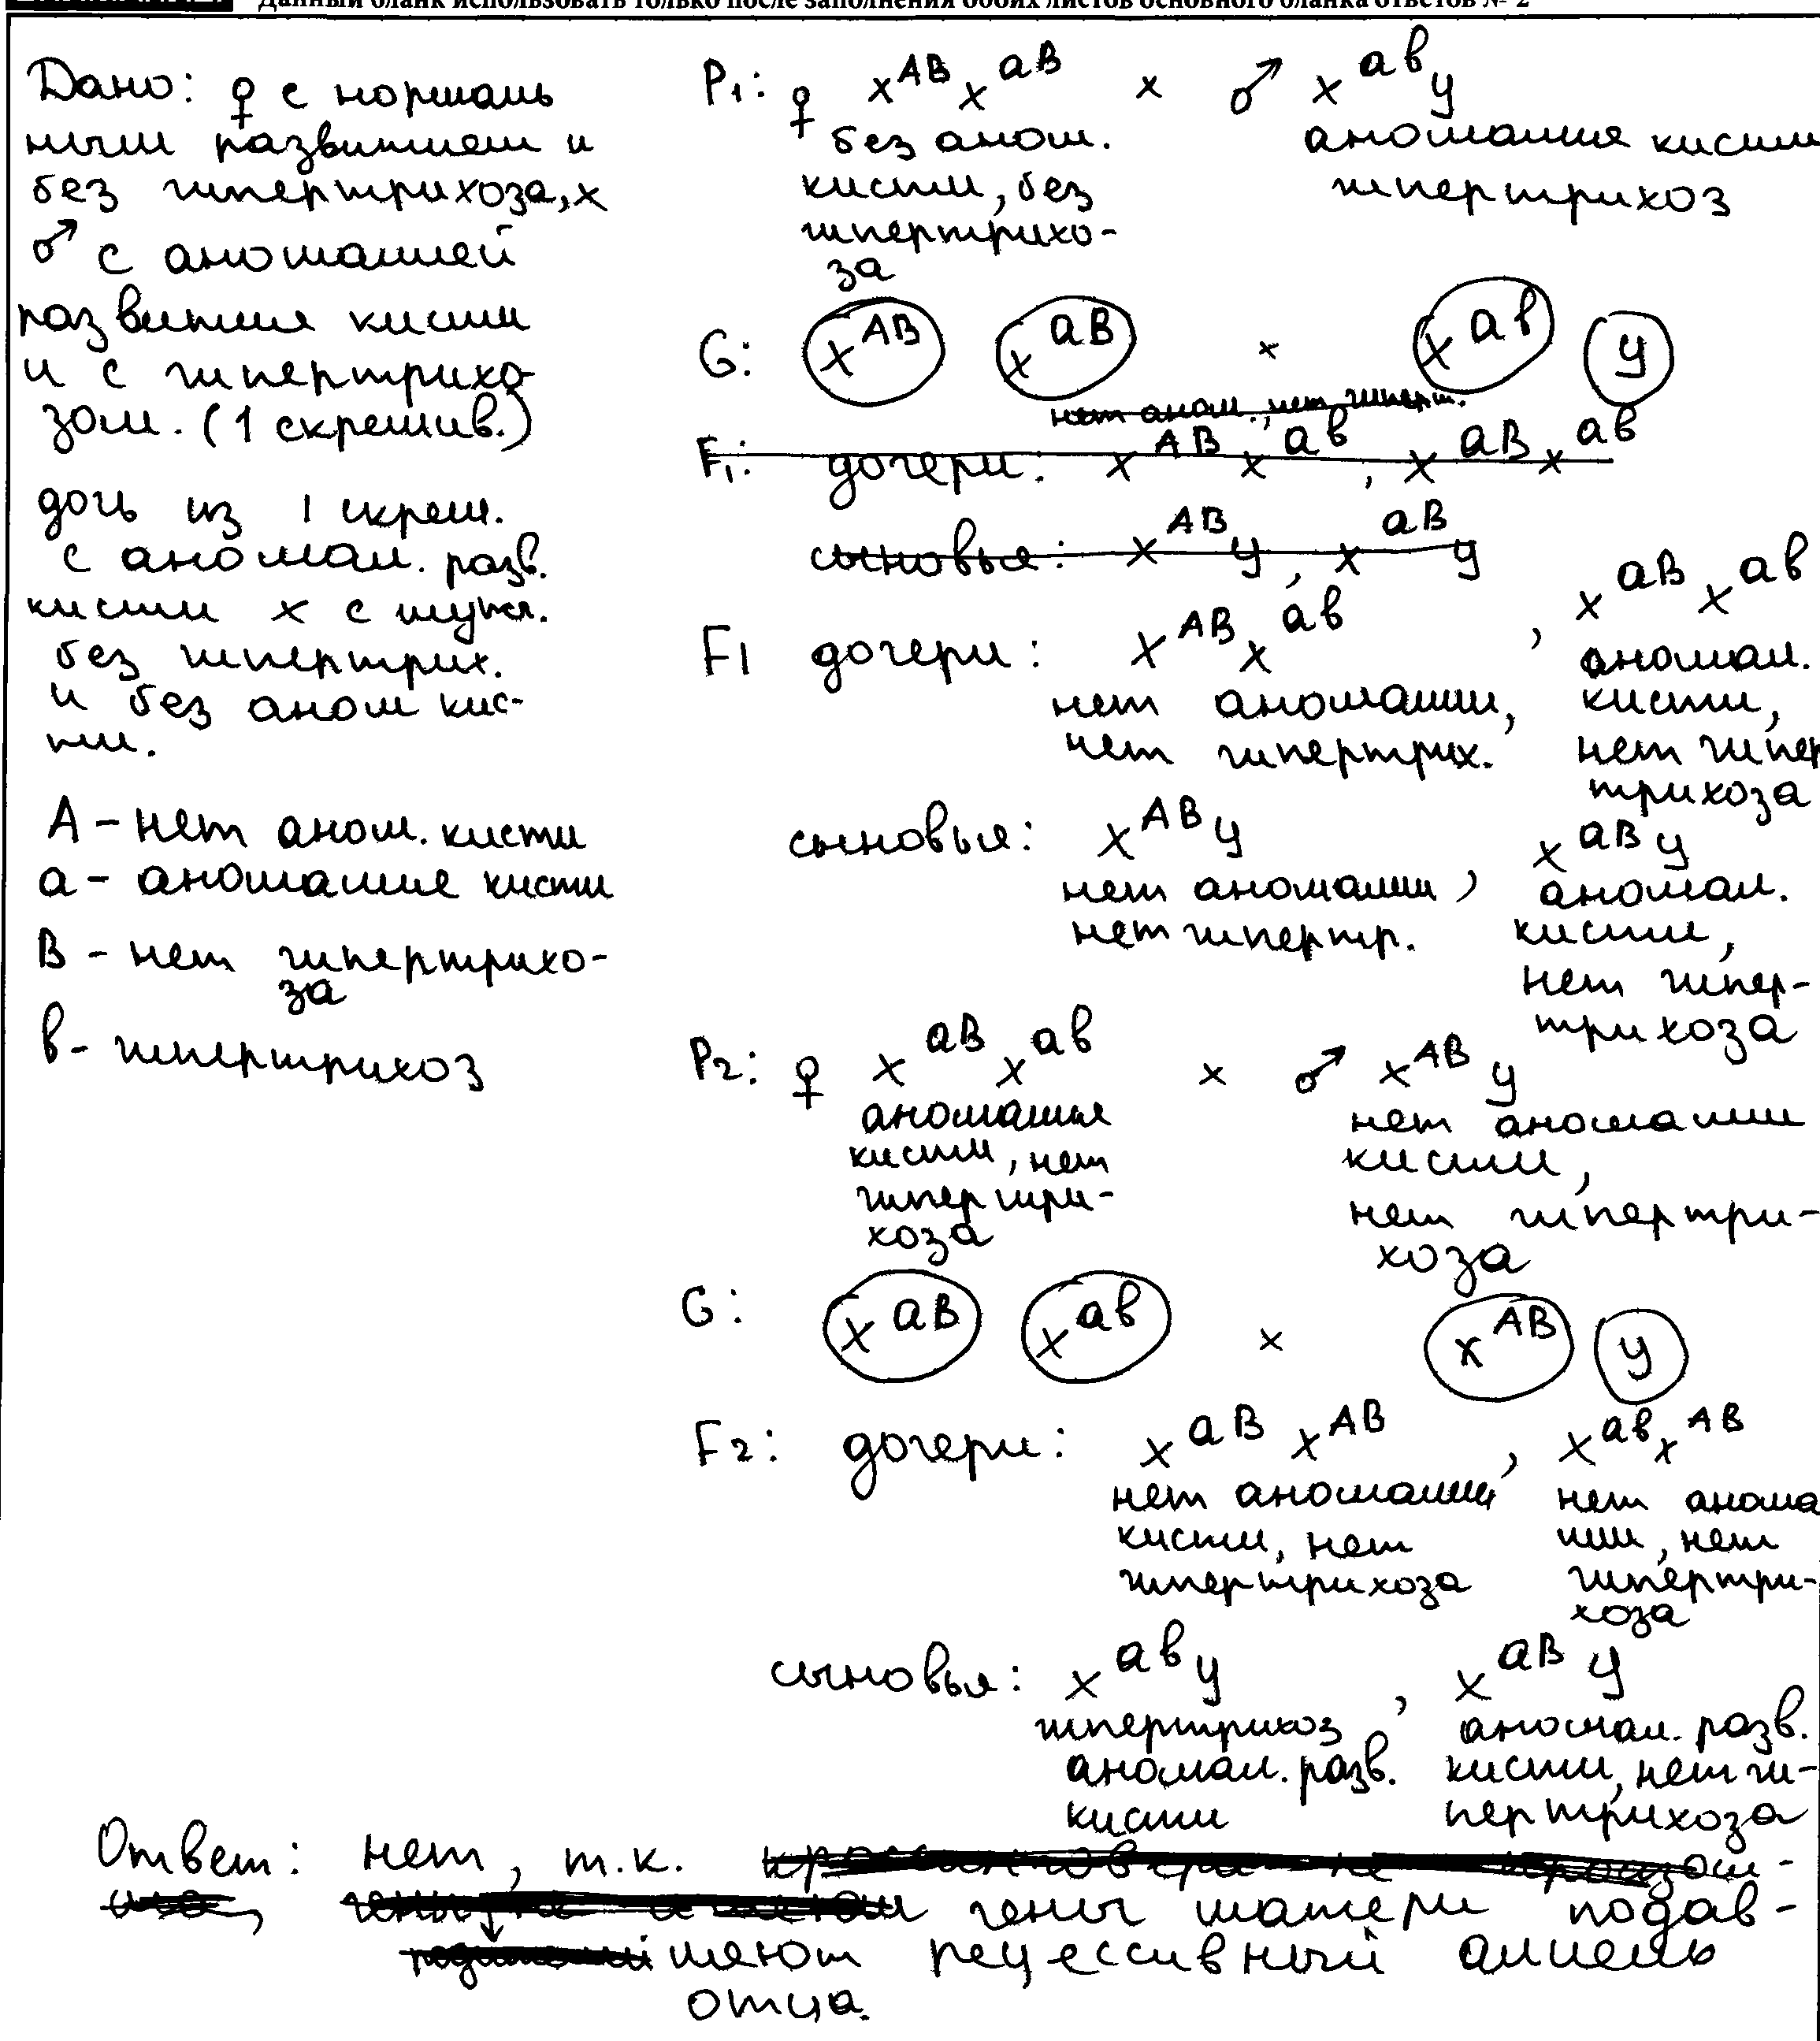 Данный бланк использовать только после заполнения обоих листов основного бланка ответов № 2
Дано: ♀ с нормаль
ным развитием и
без гипертрихоза, х
♂ с аномалией
развития кисти
и с гипертрихо-
зом. (1 скрещив.)
дочь из 1 скрещ.
с аномал. разв.
кисти х с мужч.
без гипертрих.
и без аном кис-
ти.
А – нет аном. кисти
а – аномалие кисти
В – нет гипертрихо-
за
в – гипертрихоз
P₁: ♀ XᴬᴮXᵃᴮ × ♂ Xᵃᵇy
без аном. кисти, без гипертрихо-
за
аномалия кисти
гипертрихоз
G: Xᴬᴮ Xᵃᴮ × Xᵃᵇ y
нет аном., нет гиперт.
F₁: дочери: XᴬᴮXᵃᵇ, XᵃᴮXᵃᵇ
сыновья: Xᴬᴮy, Xᵃᴮy
F1 дочери: XᴬᴮXᵃᵇ, XᵃᴮXᵃᵇ
нет аномалии,
нет гипертрих.
аномал.
кисти,
нет гипер
трихоза
сыновья: Xᴬᴮy, Xᵃᴮy
нет аномалии,
нет гипертр.
аномал.
кисти,
нет гипер-
трихоза
P₂: ♀ XᵃᴮXᵃᵇ × ♂ Xᴬᴮy
аномалия
кисти, нет
гипертри-
хоза
нет аномалии
кисти,
нет гипертри-
хоза
G: Xᵃᴮ Xᵃᵇ × Xᴬᴮ y
F₂: дочери: XᵃᴮXᴬᴮ, XᵃᵇXᴬᴮ
нет аномалии
кисти, нет
гипертрихоза
нет анома
лии, нет
гипертри-
хоза
сыновья: Xᵃᵇy, Xᵃᴮy
гипертрихоз
аномал. разв.
кисти
аномал. разв.
кисти, нет ги-
пертрихоза
Ответ: нет, т.к. кроссинговера не произош-
ло, гены матери подав-
ляют рецессивный аллель
отца.